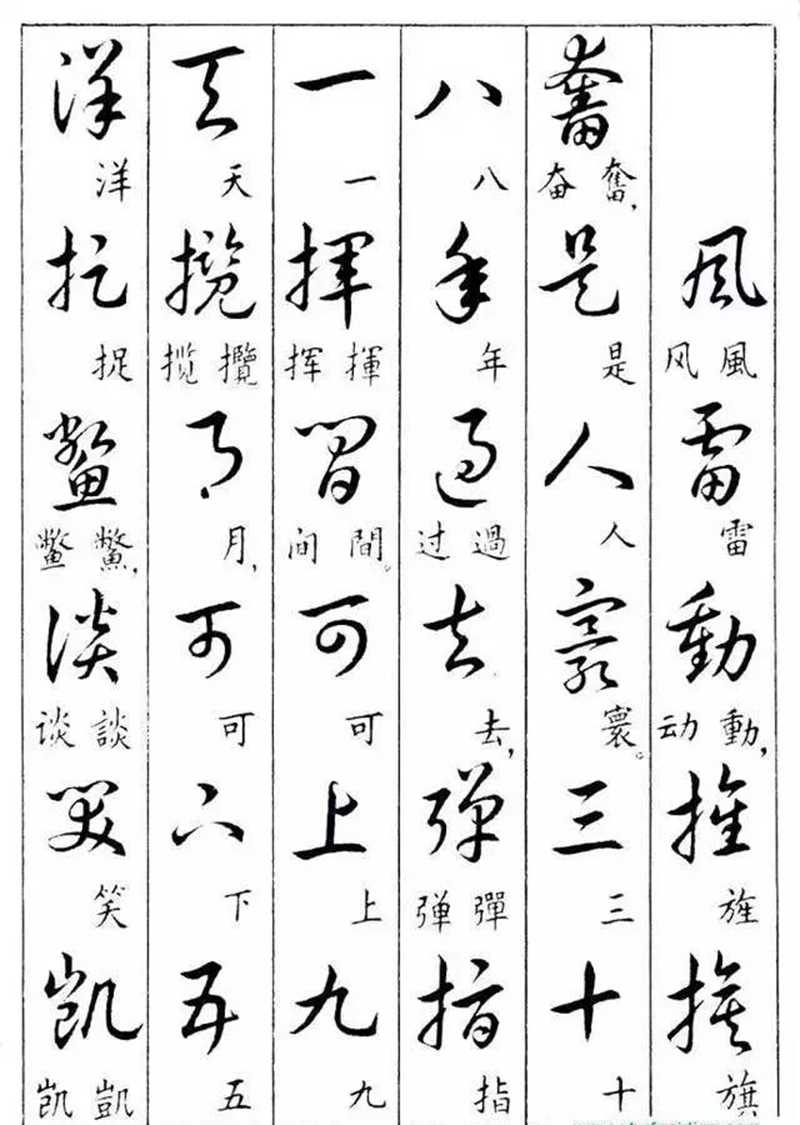 風雷動旌旗
風雷動，旌旗
风动
奮是人寰三十
奮，是人寰。三十
奋
八年過去彈指
八年過去，彈指
过弹
一揮間可上九
一揮間。可上九
挥间
天攬月可下五
天攬月，可下五
揽
洋捉鱉談笑凱
洋捉鱉，談笑凱
鳖谈凯